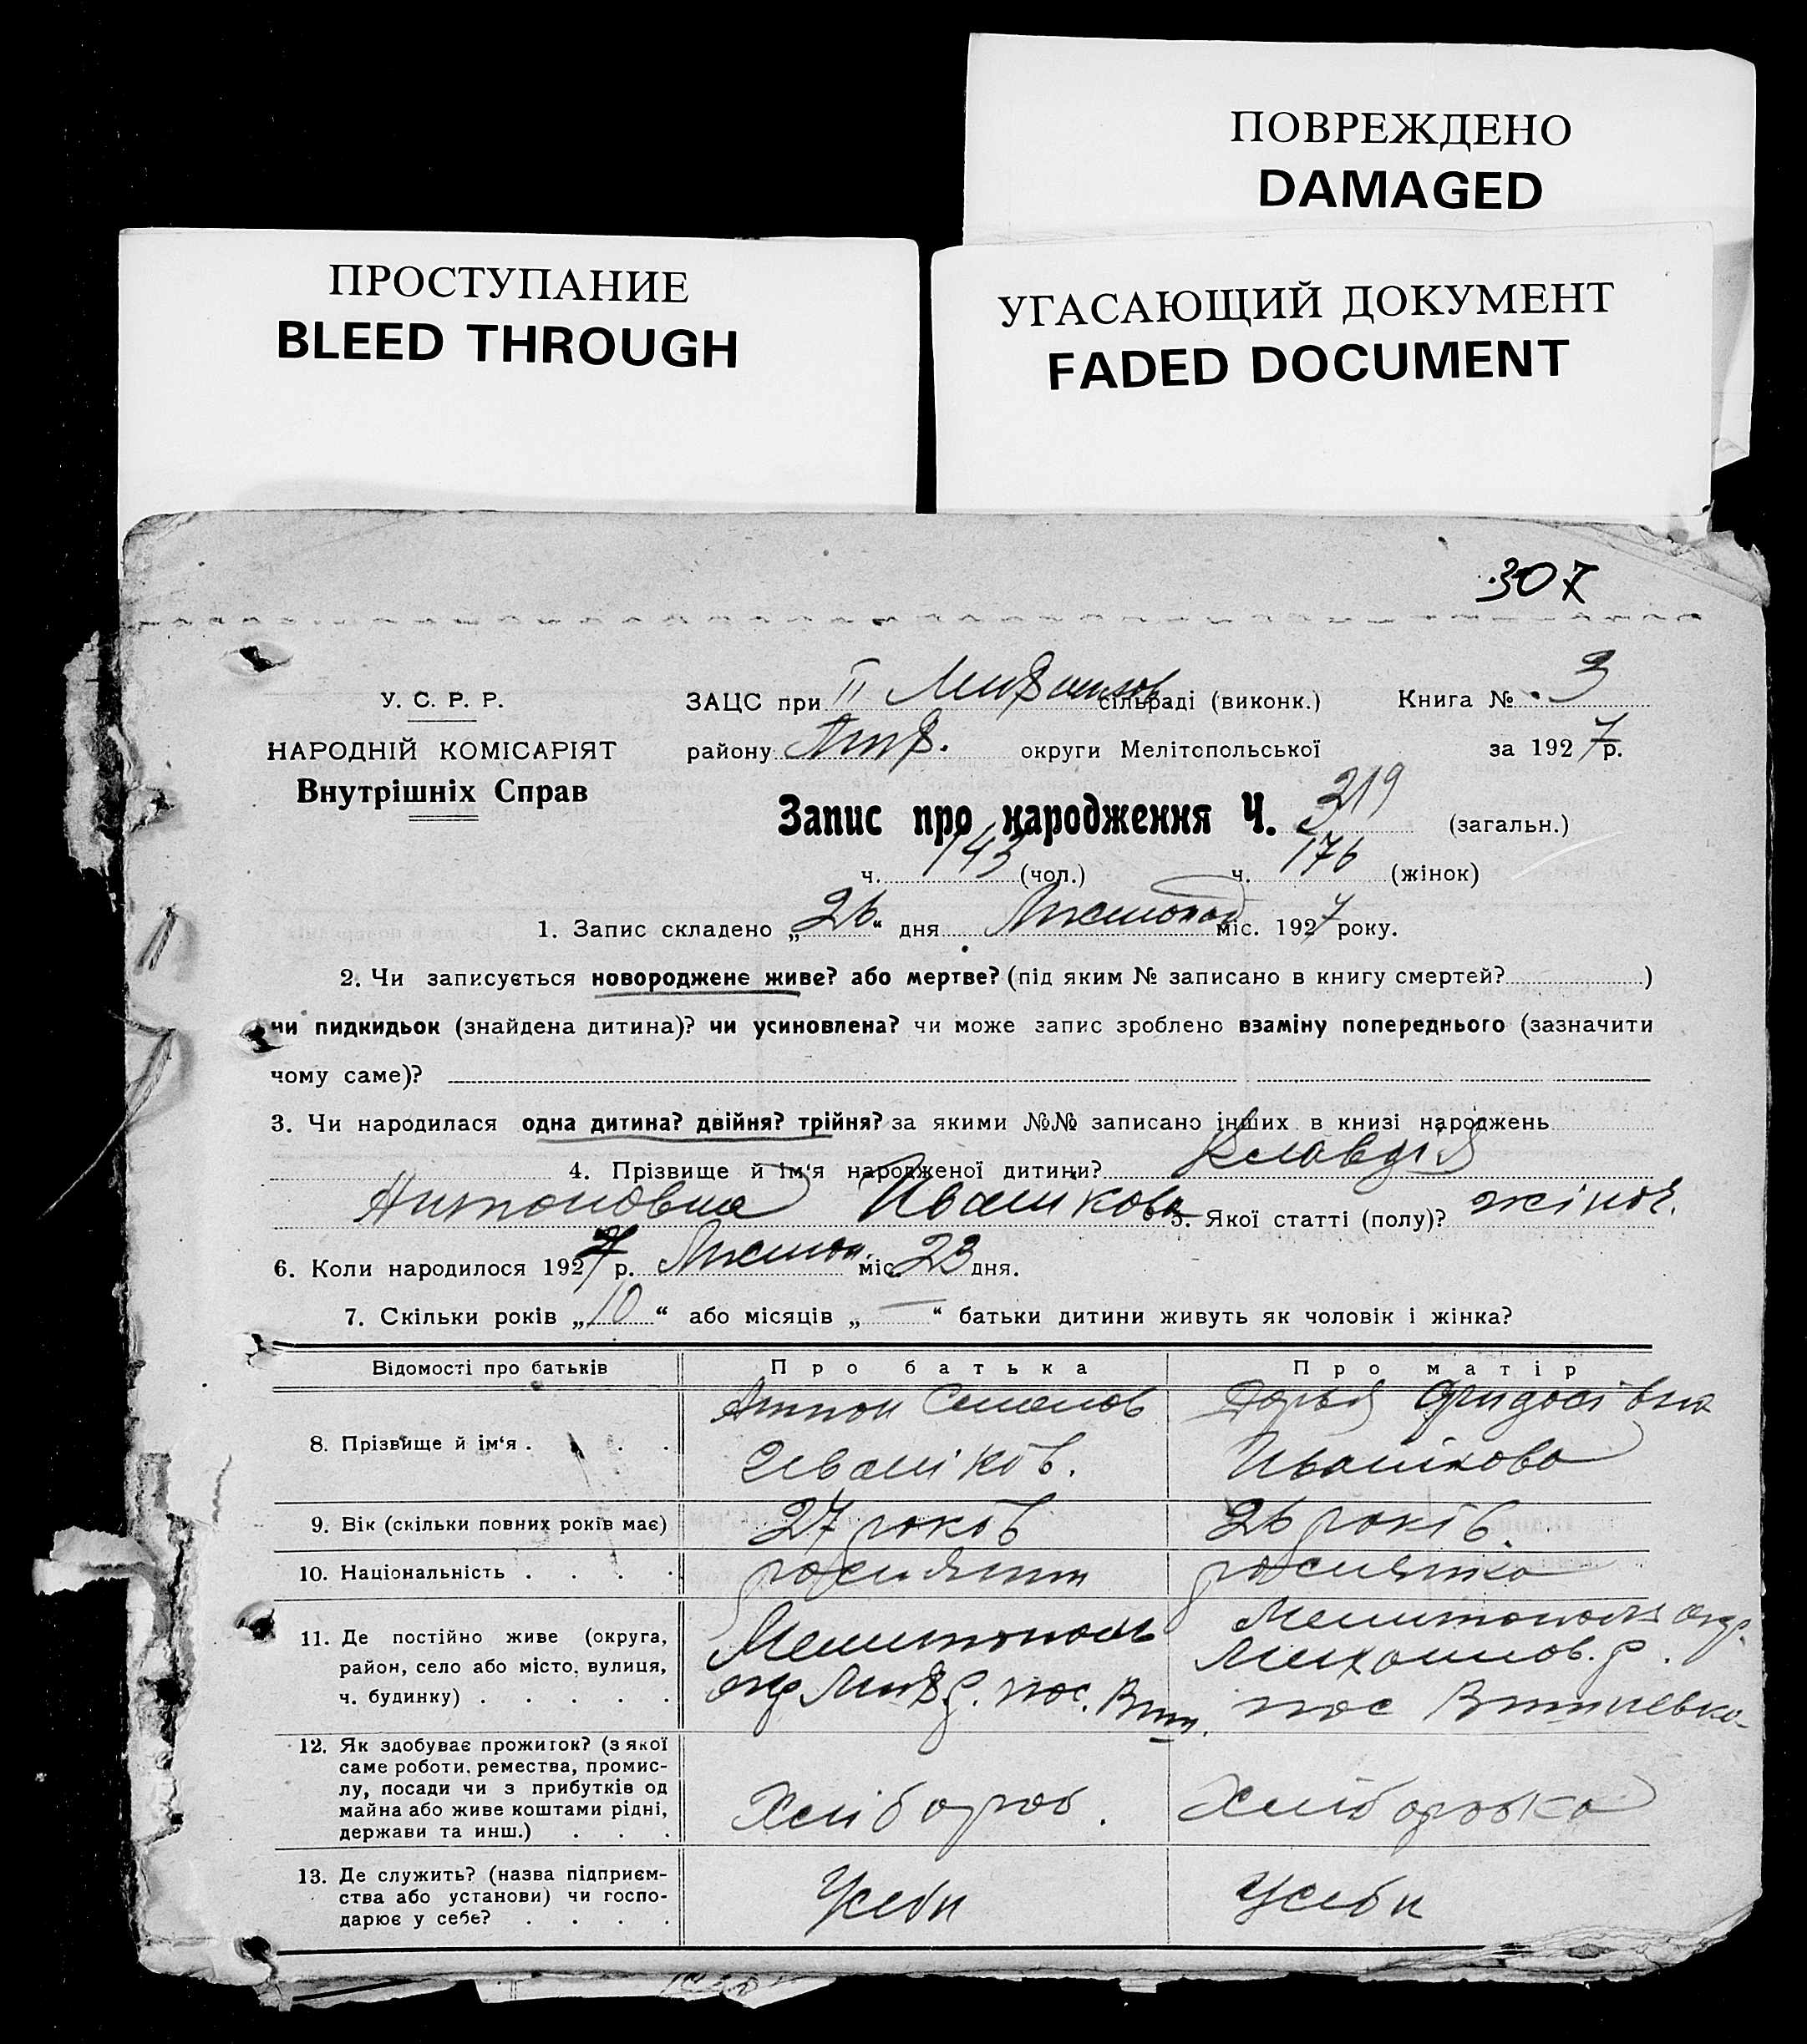 ПОВРЕЖДЕНО
DAMAGED
ПРОСТУПАНИЕ
BLEED THROUGH
УГАСАЮЩИЙ ДОКУМЕНТ
FADED DOCUMENT
307
У. С. Р. Р.
НАРОДНІЙ КОМІСАРІЯТ
Внутрішніх Справ
ЗАЦС при II сільраді (виконк.) Книга № 3
району округи Мелітопольської за 1927 р.
Запис про народження Ч. 319 (загальн.)
ч. 143 (чол.) ч. 176 (жінок)
1. Запис складено „26“ дня Листопад міс. 1927 року.
2. Чи записується новороджене живе? або мертве? (під яким № записано в книгу смертей? )
чи пидкидьок (знайдена дитина)? чи усиновлена? чи може запис зроблено взаміну попереднього (зазначити
чому саме)?
3. Чи народилася одна дитина? двійня? трійня? за якими №№ записано інших в книзі народжень
4. Прізвище й ім‘я народженої дитини? Клавдія
Антоновна Ивашкова 5. Якої статті (полу)? жіноч.
6. Коли народилося 1927 р. Листоп. міс 23 дня.
7. Скільки років „10“ або місяців „—“ батьки дитини живуть як чоловік і жінка?
Відомості про батьків Про батька Про матір
8. Прізвище й ім‘я . . . .
Антон Семенов
Дарья
9. Вік (скільки повних років має) 27 років 26 років.
10. Національність . . . . росиянин росиянка
11. Де постійно живе (округа,
район, село або місто, вулиця,
ч. будинку) . . . . .
Мелитополь
окр пос.
Мелитополь окр.
Михайлов. р.
пос
12. Як здобуває прожиток? (з якої
саме роботи, ремества, промис-
лу, посади чи з прибутків од
майна або живе коштами рідні,
держави та инш.) . . .
Хлібороб.
Хліборобка
13. Де служить? (назва підприєм-
ства або установи) чи госпо-
дарює у себе? . . . .
Усеби
Усеби